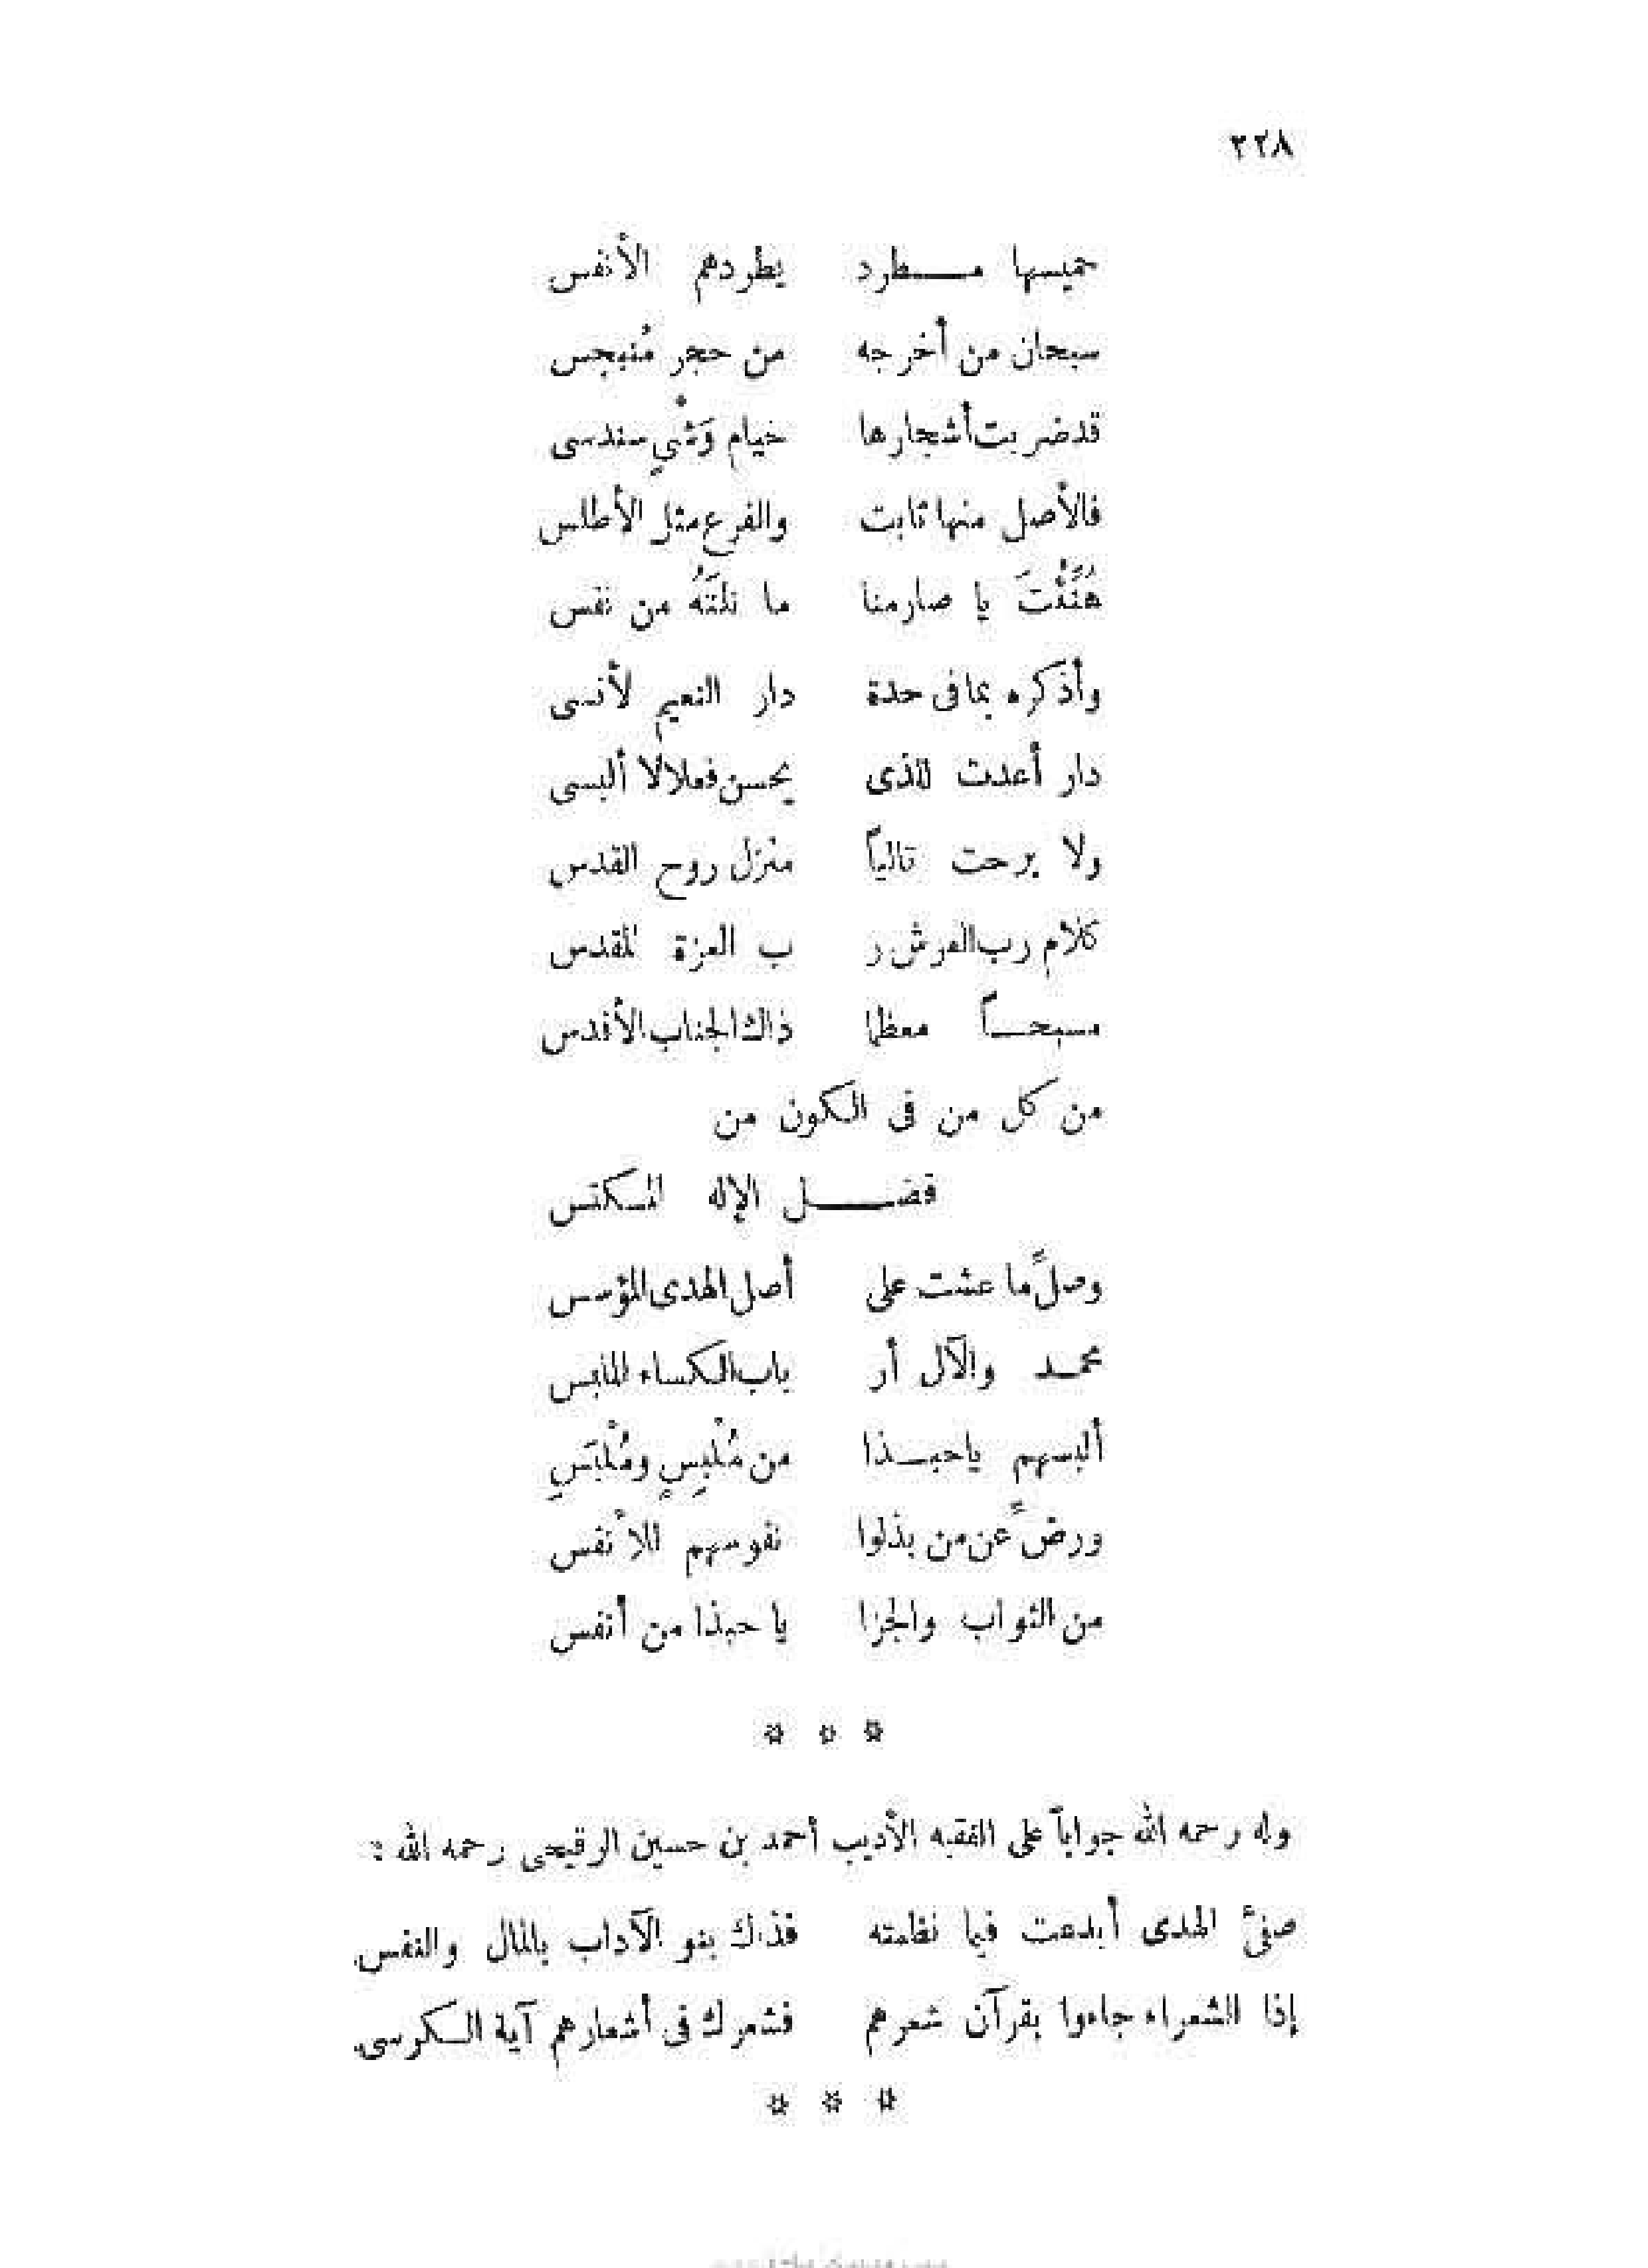 ٢٢٨
خميسها مـــطرد يطردهم الأنفس
سبحان من أخرجه من حجر مُنبجس
قد ضربت أشجارها خيام وَشْيٍ سندسى
فالأصل منها ثابت والفرع مثل الأطلس
هُنِّئْتَ يا صارمنا ما نلتَهُ من نفس
وأذكره بما فى حدة دار النعيم لأنسى
دار أعدت للذى يحسن فعلا لا ألبسى
ولا برحت تالياً منزل روح القدس
كلام رب العرش ر ب العزة المقدس
مسبحـــاً معظما ذاك الجناب الأقدس
من كل من فى الكون من
فضـــــل الإله المـكتس
وصلِّ ما عشت على أصل الهدى المؤسس
محمـد والآل أر باب الكساء الملبس
ألبسهم يا حبـــذا من مُلْبِسٍ ومُلْبَسِ
ورضِّ عن من بذلوا نفوسهم للأنفس
من الثواب والجزا يا حبذا من أنفس
* * *
وله رحمه الله جواباً على الفقيه الأديب أحمد بن حسين الرقيحى رحمه الله :
صفىَّ الهدى أبدعت فيما نظمته فذاك بنو الآداب بالمال والنفس
إذا الشعراء جاءوا بقرآن شعرهم فشعرك فى أشعارهم آية الـكرسى
* * *